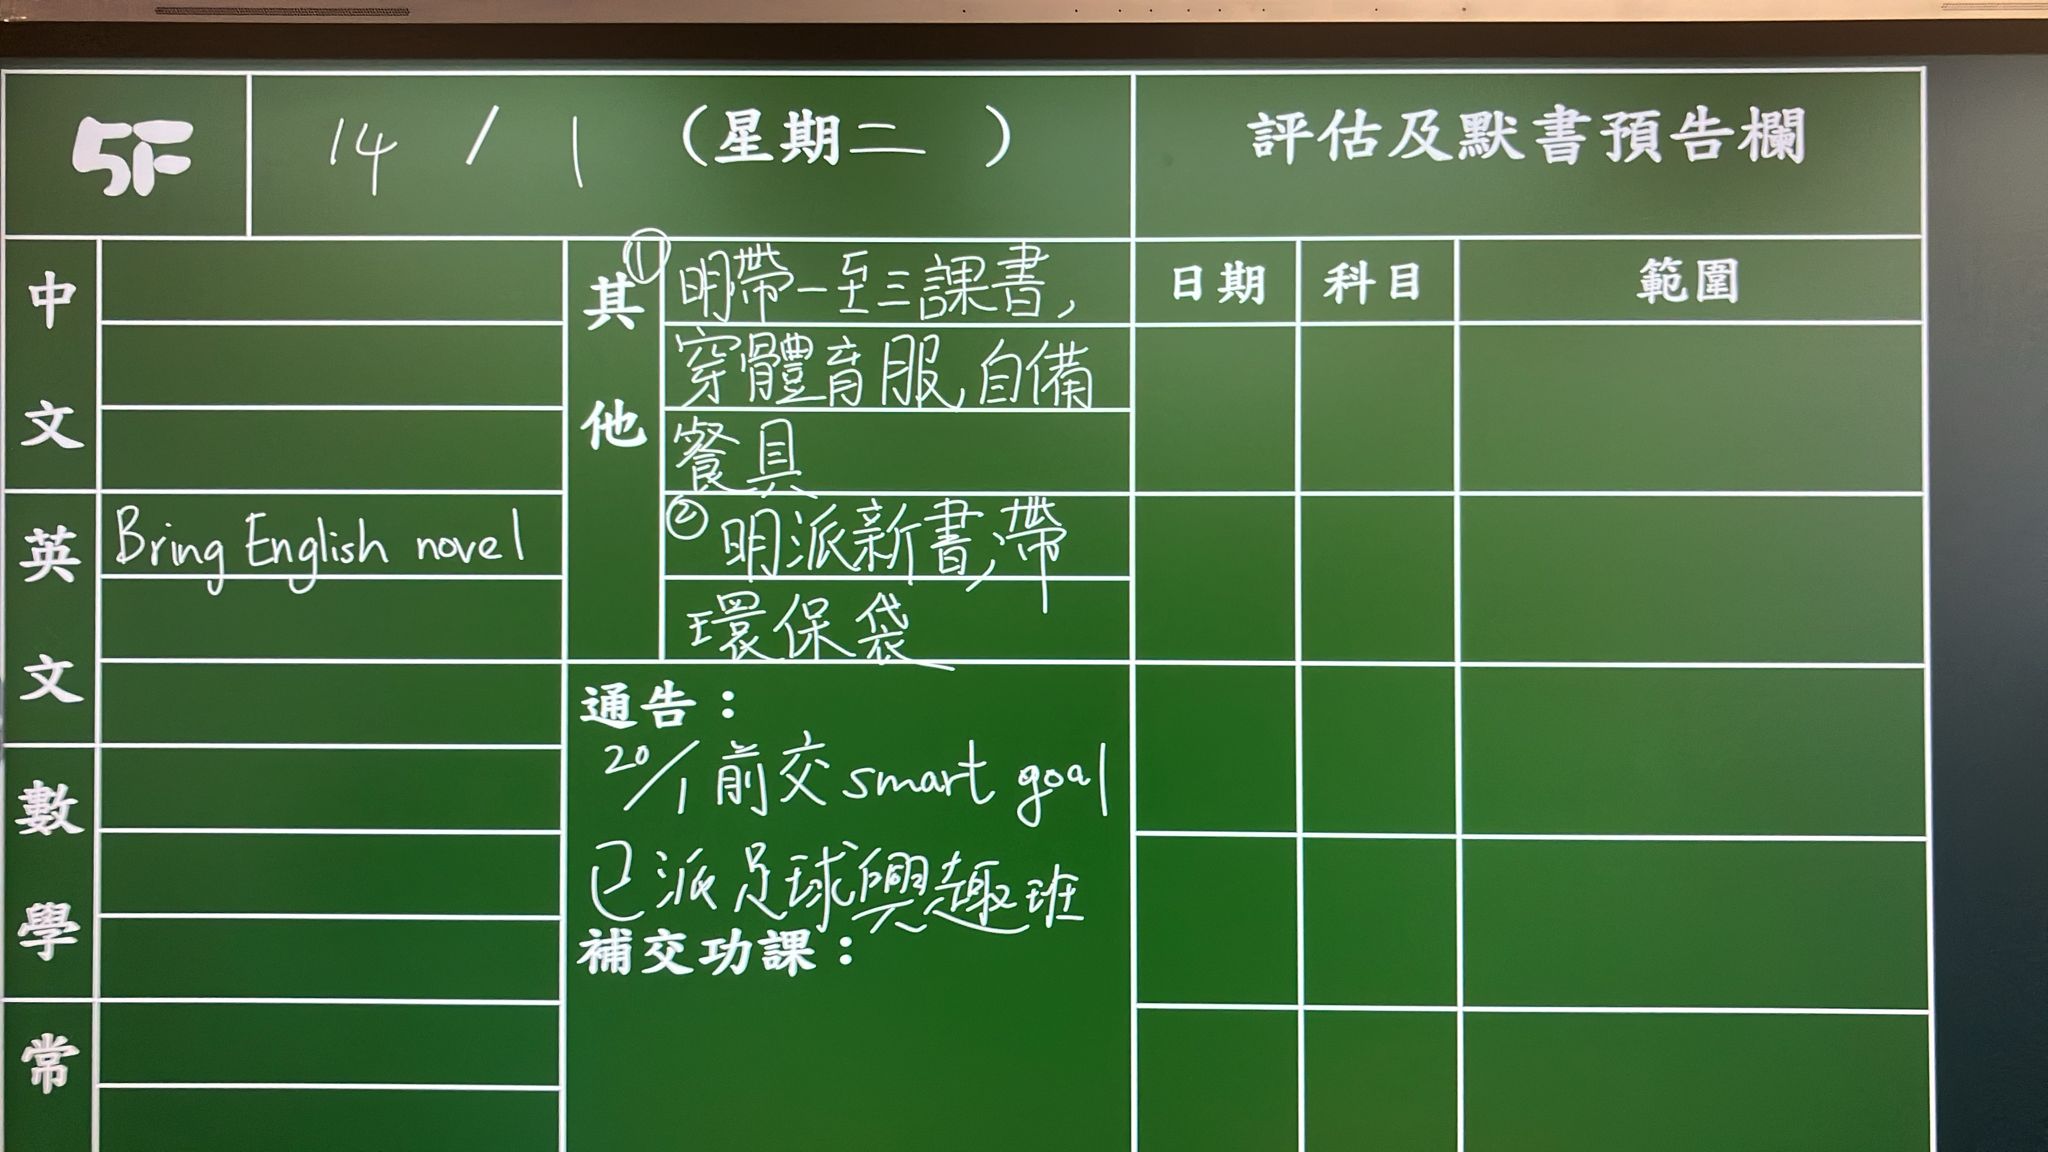 5F
14 / 1 (星期二 )
評估及默書預告欄
中文
英文
Bring English novel
數學
常
其他
① 明帶一至三課書,
穿體育服,自備
餐具
② 明派新書,帶
環保袋
通告：
20/1前交 smart goal
已派足球興趣班
補交功課：
日期 科目 範圍